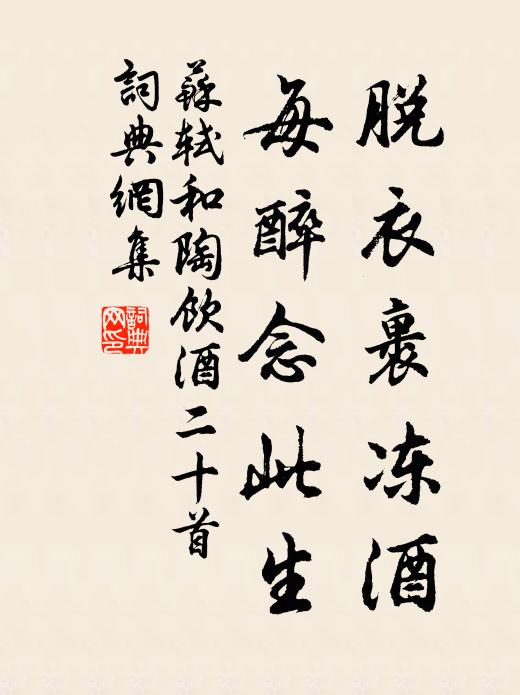 脱衣裹冻酒
每醉念此生
蘇軾和陶飲酒二十首
詞典網集
詞典网印